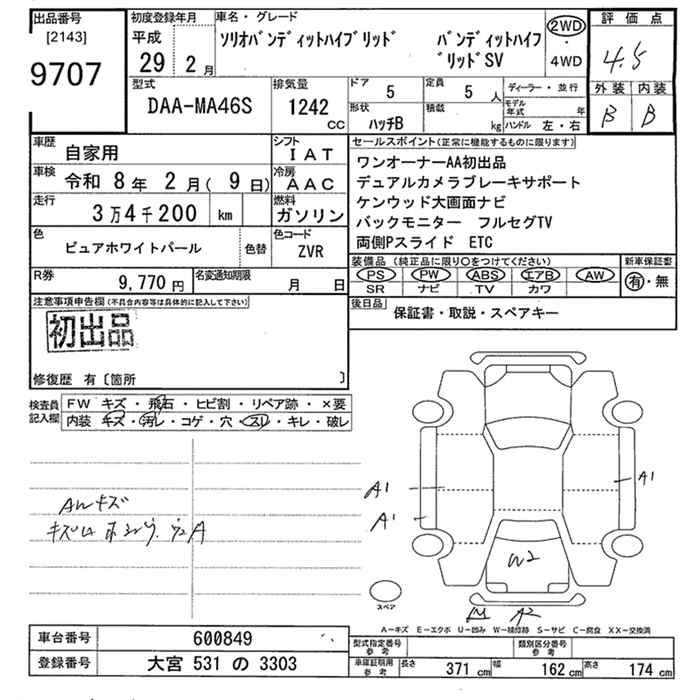 出品番号
[2143]
9707
初度登録年月
平成
29 2月
車名・グレード
ソリオバンディットハイブリッド バンディットハイブ
リッドSV
2WD
・
4WD
評価点
4.5
外装 内装
B B
型式
DAA-MA46S
排気量
1242
CC
ドア
5
定員
5 人
形状
ハッチB
積載
kg
ディーラー・並行
モデル
年式 年
ハンドル 左・右
車歴
自家用
シフト
IAT
車検
令和 8年 2月( 9日)
冷房
AAC
走行
3万4千200 km
燃料
ガソリン
色
ピュアホワイトパール
色替
色コード
ZVR
R券
9,770円
名変通知期限
月 日
セールスポイント(正常に機能するものに限ります)
ワンオーナーAA初出品
デュアルカメラブレーキサポート
ケンウッド大画面ナビ
バックモニター フルセグTV
両側Pスライド ETC
装備品(純正品に限り○をつけてください)
PS PW ABS エアB AW
SR ナビ TV カワ
新車保証書
有・無
後日品
保証書・取説・スペアキー
注意事項申告欄(不具合内容等は具体的に記入して下さい)
初出品
修復歴 有〔箇所 〕
検査員
記入欄
FW キズ・飛石・ヒビ割・リペア跡・×要
内装 キズ・汚レ・コゲ・穴・スレ・キレ・破レ
AWキズ
A1
A1
A1
W2
スペア
A-キズ E-エクボ U-凹み W-補修跡 S-サビ C-腐食 XX-交換済
車台番号
600849
登録番号
大宮 531 の 3303
型式指定番号
参考
類別区分番号
参考
車庫証明用
参考
長さ 371 cm 幅 162 cm 高さ 174 cm